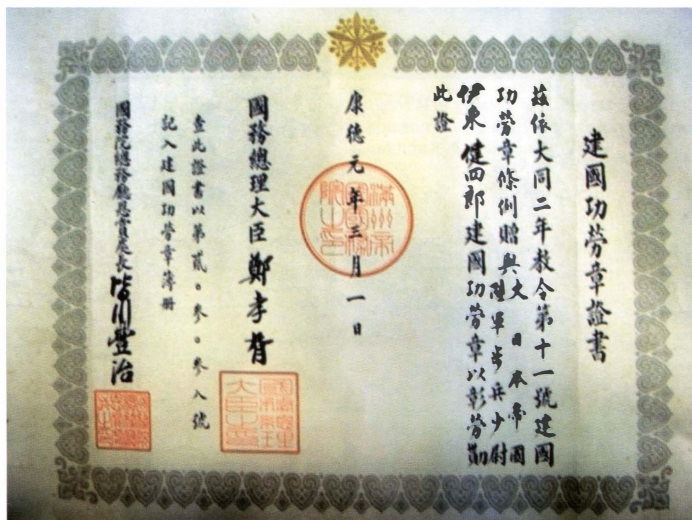 建國功勞章證書
茲依大同二年教令第十一號建國
功勞章條例贈與大日本帝國
陸軍步兵少尉
伊東健四郎建國功勞章以彰勞勛
此證
康德元年三月一日
國務總理大臣鄭孝胥
查此證書以第貳〇參〇參八號
記入建國功勞章簿册
國務院總務廳恩賞處長皆川豐治